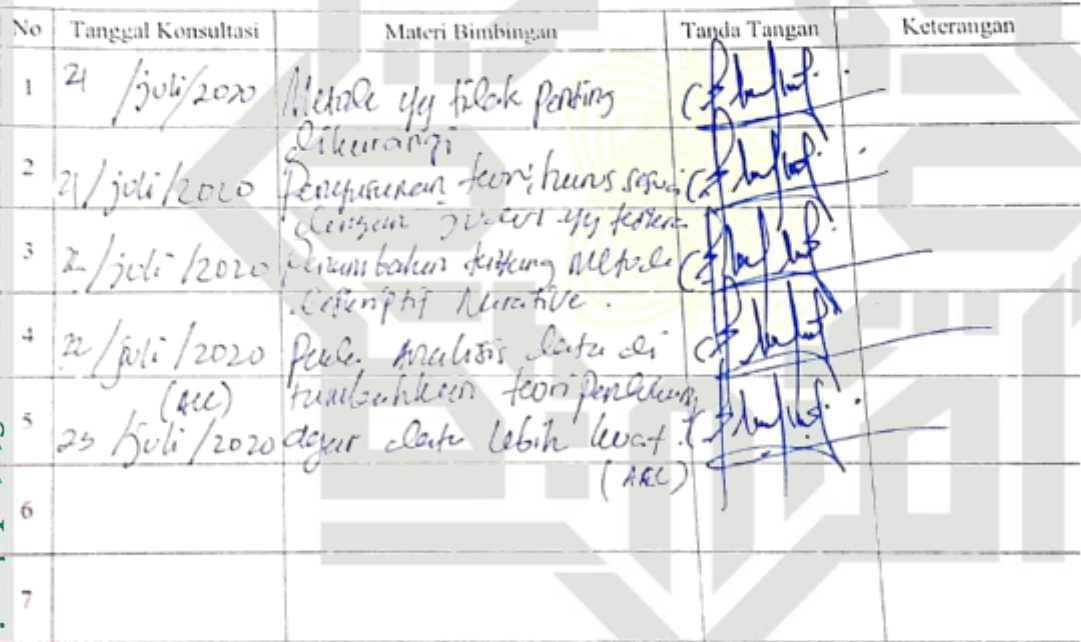 No Tanggal Konsultasi Materi Bimbingan Tanda Tangan Keterangan
1 21 /juli/2020 Metode yg tidak penting
dikurangi
2 21/juli/2020 teori harus sesuai
dengan yg tertera
3 22/juli/2020 tentang Metode
Narative.
4 22/juli/2020 Pada Analisis data di
(acc) tambahkan teori
5 23/juli/2020 agar data lebih kuat.
(ACC)
6
7